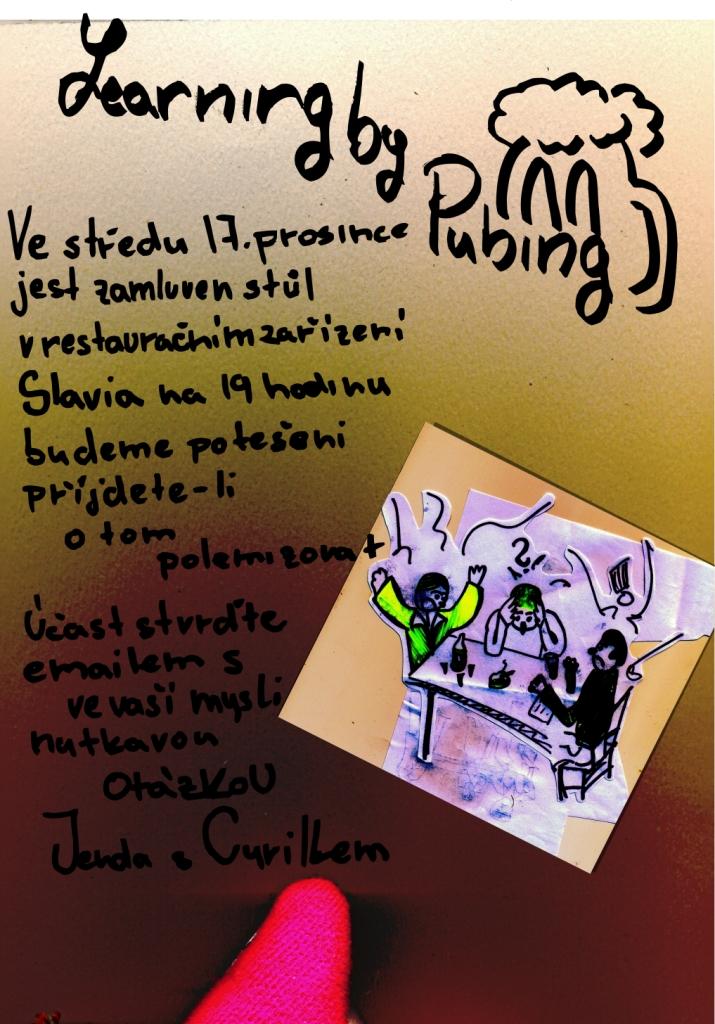 Learning by
Pubing
Ve středu 17. prosince
jest zamluven stůl
v restauračním zařízení
Slavia na 19 hodinu
budeme potešeni
přijdete-li
o tom
polemizovat
Účast stvrďte
emailem s
ve vaší mysli
nutkavou
OtázKoU
Jenda s Cyrilkem
?!